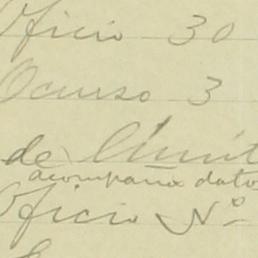 Oficio 30
Ocurso 3
de
acompaña datos
Oficio Nº